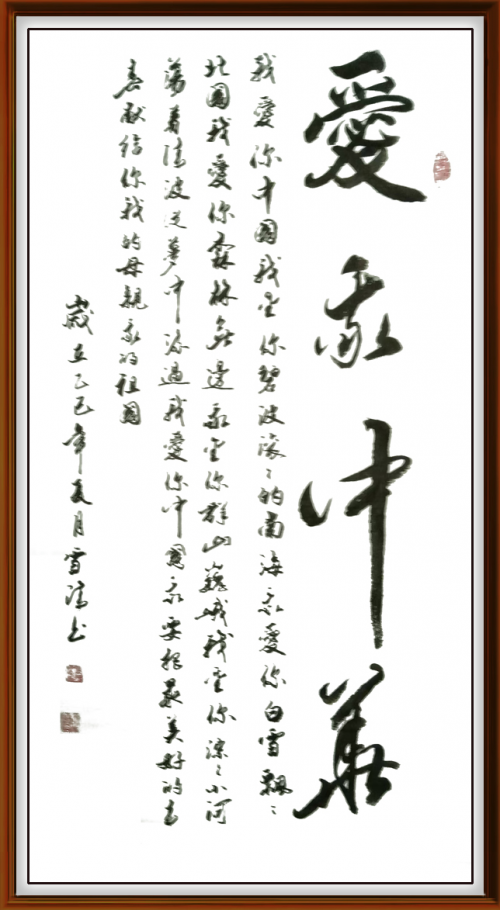 愛我中華
我愛你中國我爱你碧波滚〻的南海我愛你白雪飄〻
北國我愛你森林無邊我爱你群山巍峨我爱你淙〻小河
蕩着清波從夢中流過我愛你中國我要把最美好的青
春献给你我的母親我的祖國
歲在乙巳年夏月雪清书